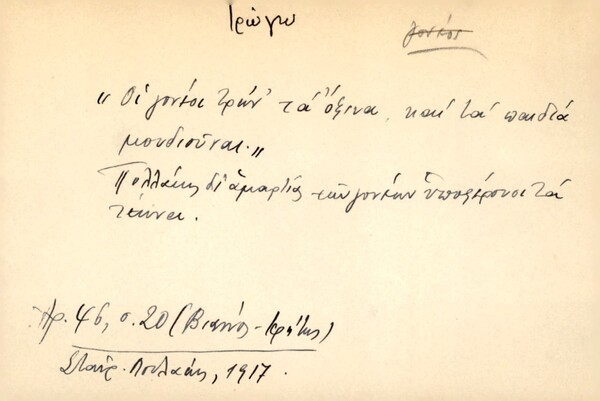 τρώγω
γονέοι
"Οἱ γονέοι τρῶν' τὰ ὄξινα, καὶ τὰ παιδιά
μουδιοῦναι."
Πολλάκις δι' ἁμαρτίας τῶν γονέων ὑποφέρουσι τὰ
τέκνα.
Ἀρ. 46, σ. 20 (Βιάννος - Κρήτης)
Σταῦρ. , 1917.